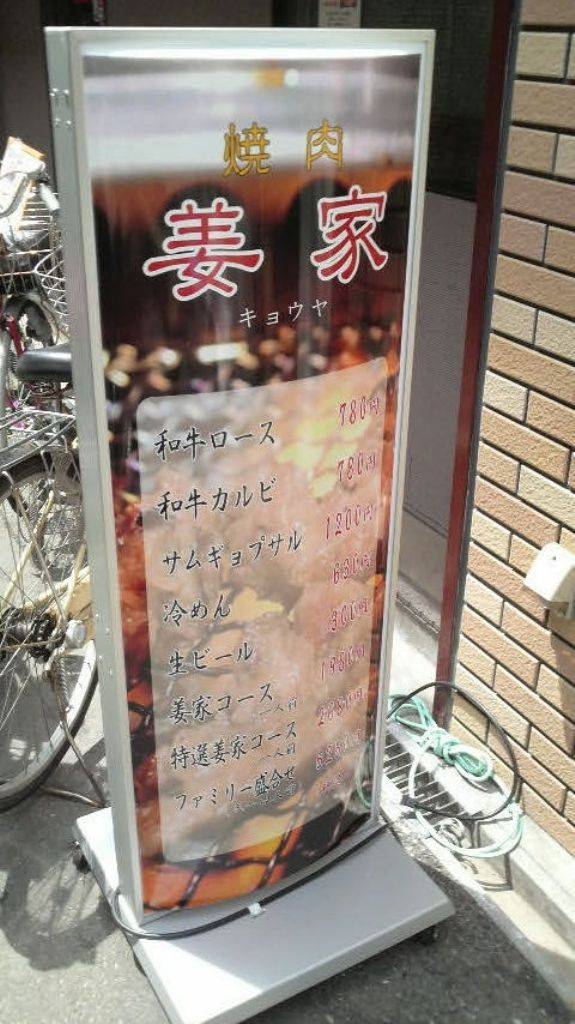 焼肉
姜家
キョウヤ
和牛ロース 780円
和牛カルビ 780円
サムギョプサル 1200円
冷めん 630円
生ビール 300円
姜家コース 1980円
一人前
特選姜家コース
一人前
ファミリー盛合せ